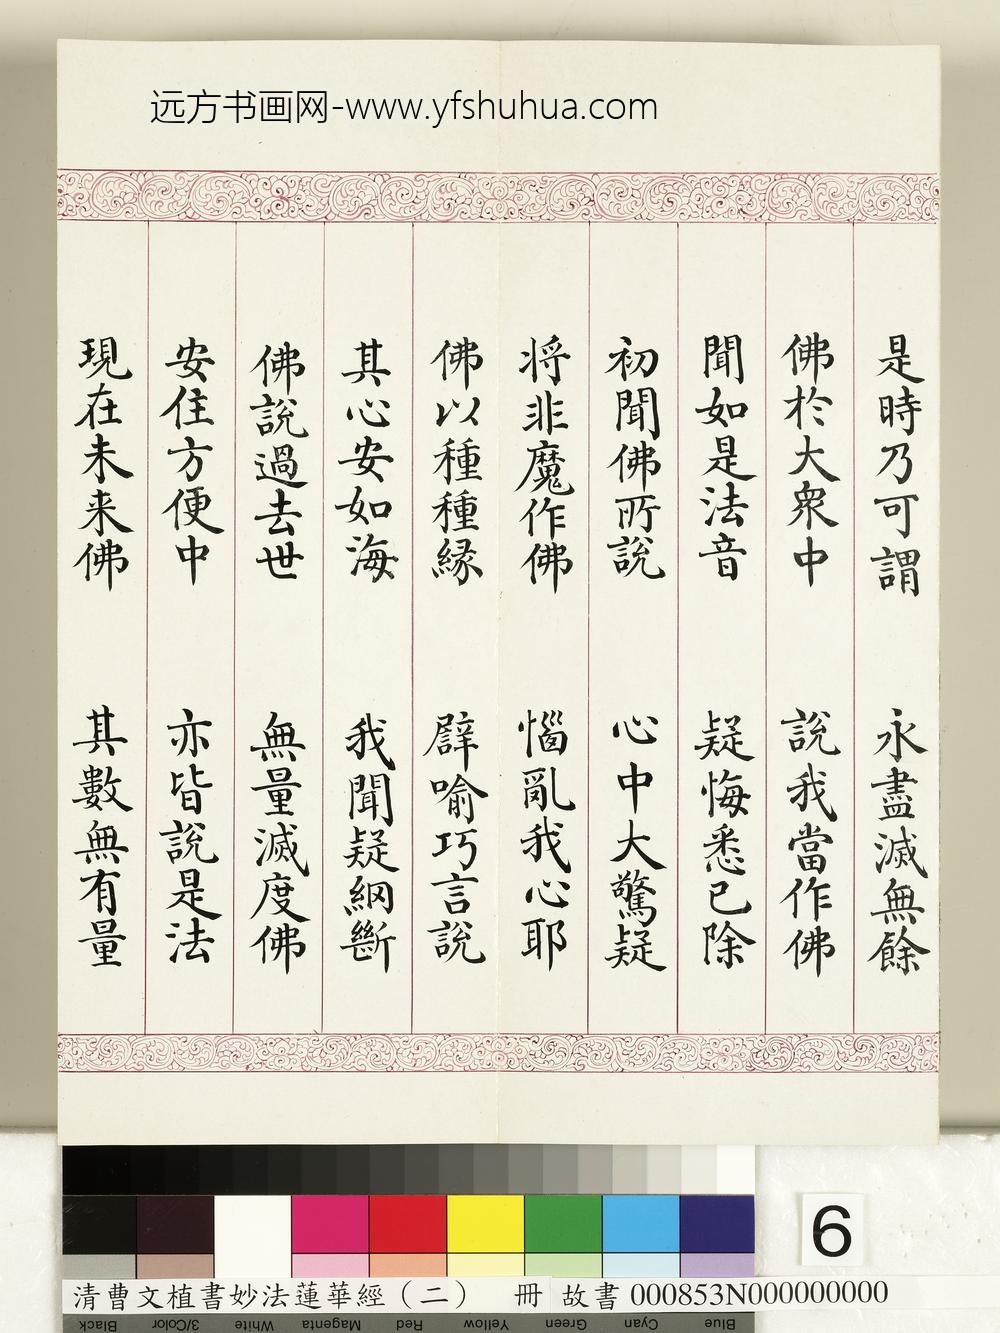 远方书画网-www.yfshuhua.com
是時乃可謂 永盡滅無餘
佛於大衆中 說我當作佛
聞如是法音 疑悔悉已除
初聞佛所說 心中大驚疑
将非魔作佛 惱亂我心耶
佛以種種緣 辟喻巧言說
其心安如海 我聞疑網斷
佛說過去世 無量滅度佛
安住方便中 亦皆說是法
現在未来佛 其數無有量
6
清曹文植書妙法蓮華經（二） 冊 故書 000853N000000000
Black 3/Color White Magenta Red Yellow Green Cyan Blue